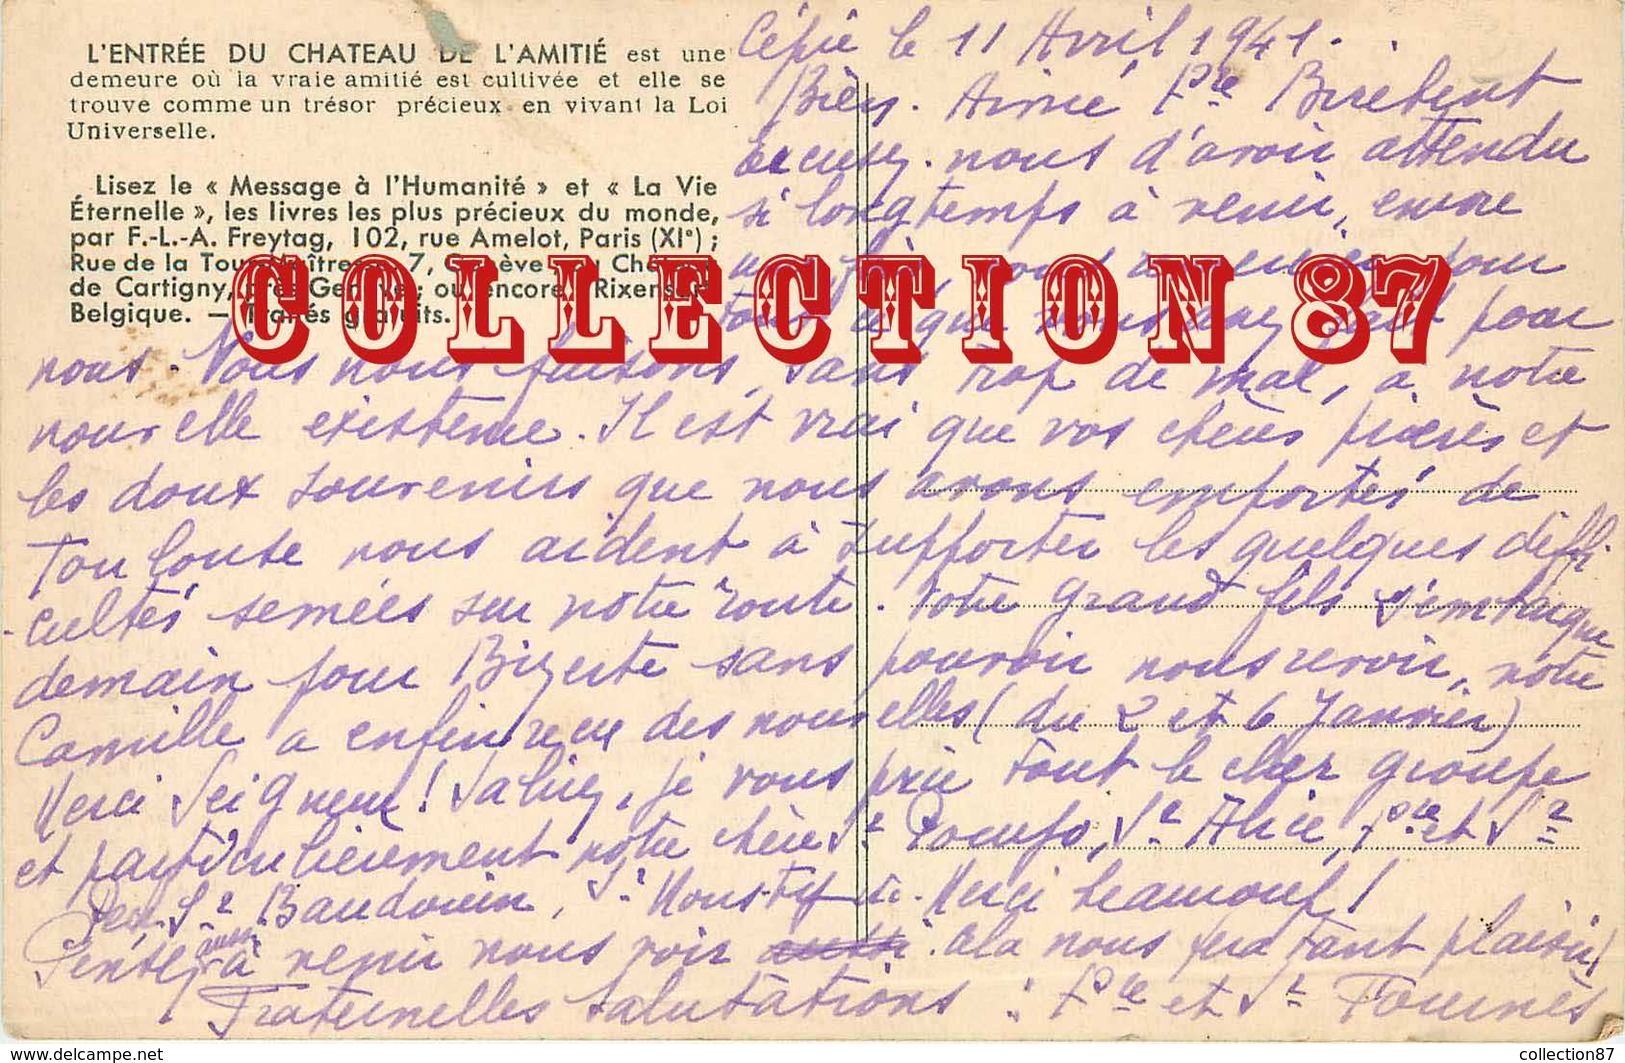 L'ENTRÉE DU CHATEAU DE L'AMITIÉ est une
demeure où la vraie amitié est cultivée et elle se
trouve comme un trésor précieux en vivant la Loi
Universelle.
Lisez le « Message à l'Humanité » et « La Vie
Éternelle », les livres les plus précieux du monde,
par F.-L.-A. Freytag, 102, rue Amelot, Paris (XI°) ;
Rue de la Tour Maîtresse 7, Genève ; au Château
de Cartigny, près Genève ; ou encore Rixensart
Belgique. — Traités gratuits.
Cépie le 11 Avril 1941.
Bien. Aimé Fre Buretent
Excusez. nous d'avoir attendu
si longtemps à venir, encore
une fois, vous remercier pour
tout ce que vous avez fait pour
nous. Nous nous faisons, sans trop de mal, à notre
nouvelle existence. Il est vrai que vos chères prières et
les doux souvenirs que nous avons emportés de
Toulouse nous aident à supporter les quelques diffi
cultés semées sur notre route. Notre grand fils s'embarque
demain pour Bizerte sans pouvoir nous revoir, notre
Camille a enfin reçu des nouvelles (du 2 et 6 Janvier)
Merci Seigneur ! Saluez, je vous prie tout le cher groupe
et particulièrement notre chère Sr Poumfo, Sr Alice, Fre et Sr
Sr Baudouin, Sr Merci beaucoup !
Pensez aussi à venir nous voir. Cela nous fera tant plaisir !
Fraternelles salutations : Fre et Sr Fournès
COLLECTION 87
www.delcampe.net
collection87